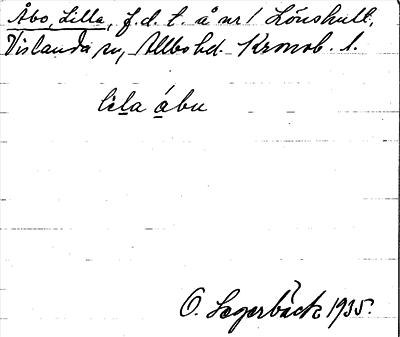 Åbo, Lilla, f.d. t. å nr 1 Lönshult,
Vislanda sn, Allbo hd. Kronob. l.
lila åbu
O. Segerbäck 1935.